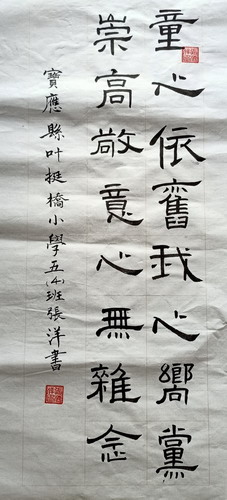 童心依舊我心嚮黨
崇高敬意心無雜念
寶應縣叶挺橋小學五(4)班張洋書